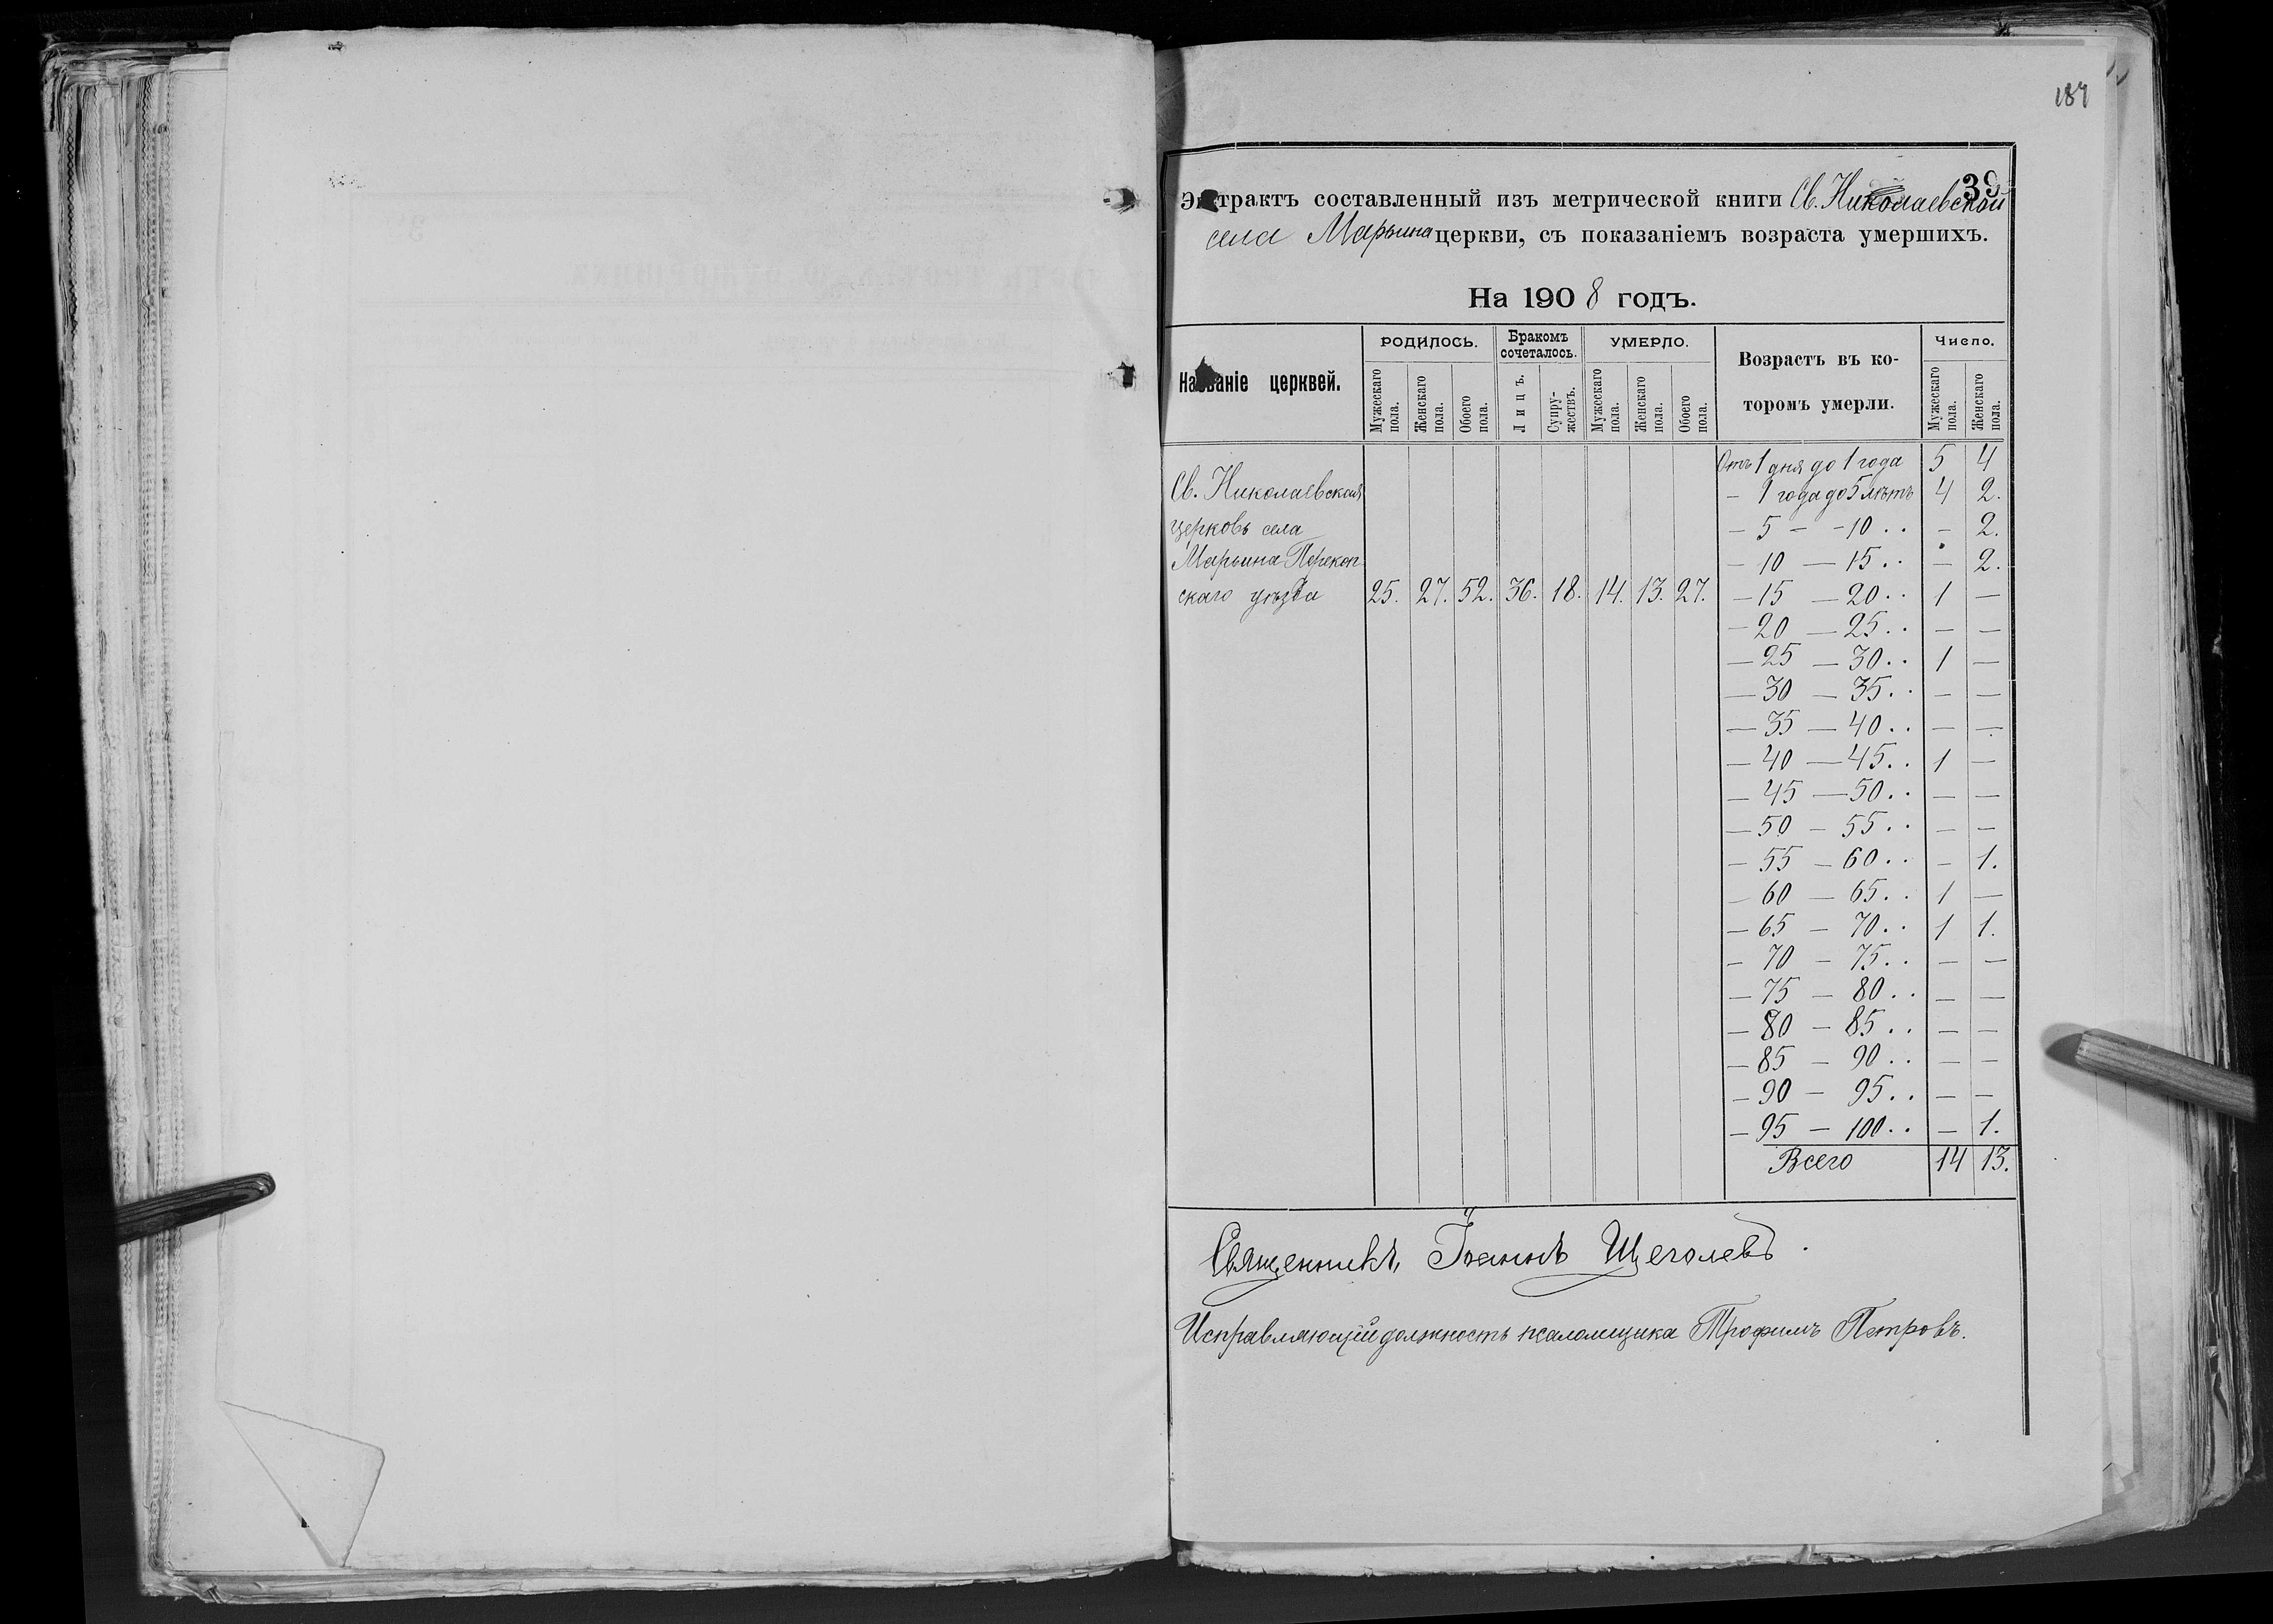 187
39
Экстрактъ составленный изъ метрической книги Св. Николаевской
села Марьина церкви, съ показаніемъ возраста умершихъ.
На 1908 годъ.
Названіе церквей.
РОДИЛОСЬ.
Мужескаго пола.
Женскаго пола.
Обоего пола.
Бракомъ сочеталось.
Лицъ.
Супру-жествъ.
УМЕРЛО.
Мужескаго пола.
Женскаго пола.
Обоего пола.
Возрастъ въ ко-
торомъ умерли.
Число.
Мужескаго пола.
Женскаго пола.
Отъ 1 дня до 1 года 5 4
Св. Николаевская — 1 года до 5 лѣтъ 4 2.
церковь села — 5 — 10 . . — 2.
Марьина Перекоп — 10 — 15 . . — 2.
скаго уѣзда 25. 27. 52. 36. 18. 14. 13. 27. — 15 — 20 . . 1 —
— 20 — 25 . . — —
— 25 — 30 . . 1 —
— 30 — 35 . . — —
— 35 — 40 . . — —
— 40 — 45 . . 1 —
— 45 — 50 . . — —
— 50 — 55 . . — —
— 55 — 60 . . — 1.
— 60 — 65 . . 1 —
— 65 — 70 . . 1 1.
— 70 — 75 . . — —
— 75 — 80 . . — —
— 80 — 85 . . — —
— 85 — 90 . . — —
— 90 — 95 . . — —
— 95 — 100 . . — 1.
Всего 14 13.
Священникъ, Іоаннъ Щеголевъ.
Исправляющій должность псаломщика Трофимъ Петровъ.